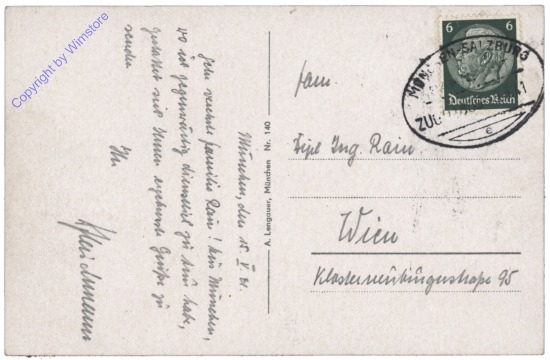 Copyright by Wimstore
München, den 15. V. 41.
Sehr geehrte Familie Rain! Aus München,
wo ich gegenwärtig dienstlich zu tun habe,
gestatte ich Ihnen ergebenste Grüße zu
senden
Ihr
A. Lengauer, München Nr. 140
6 6
Deutsches Reich
MÜNCHEN-SALZBURG
ZUG
e
Fam.
Dipl Ing Rain
Wien
Klosterneuburgerstraße 95